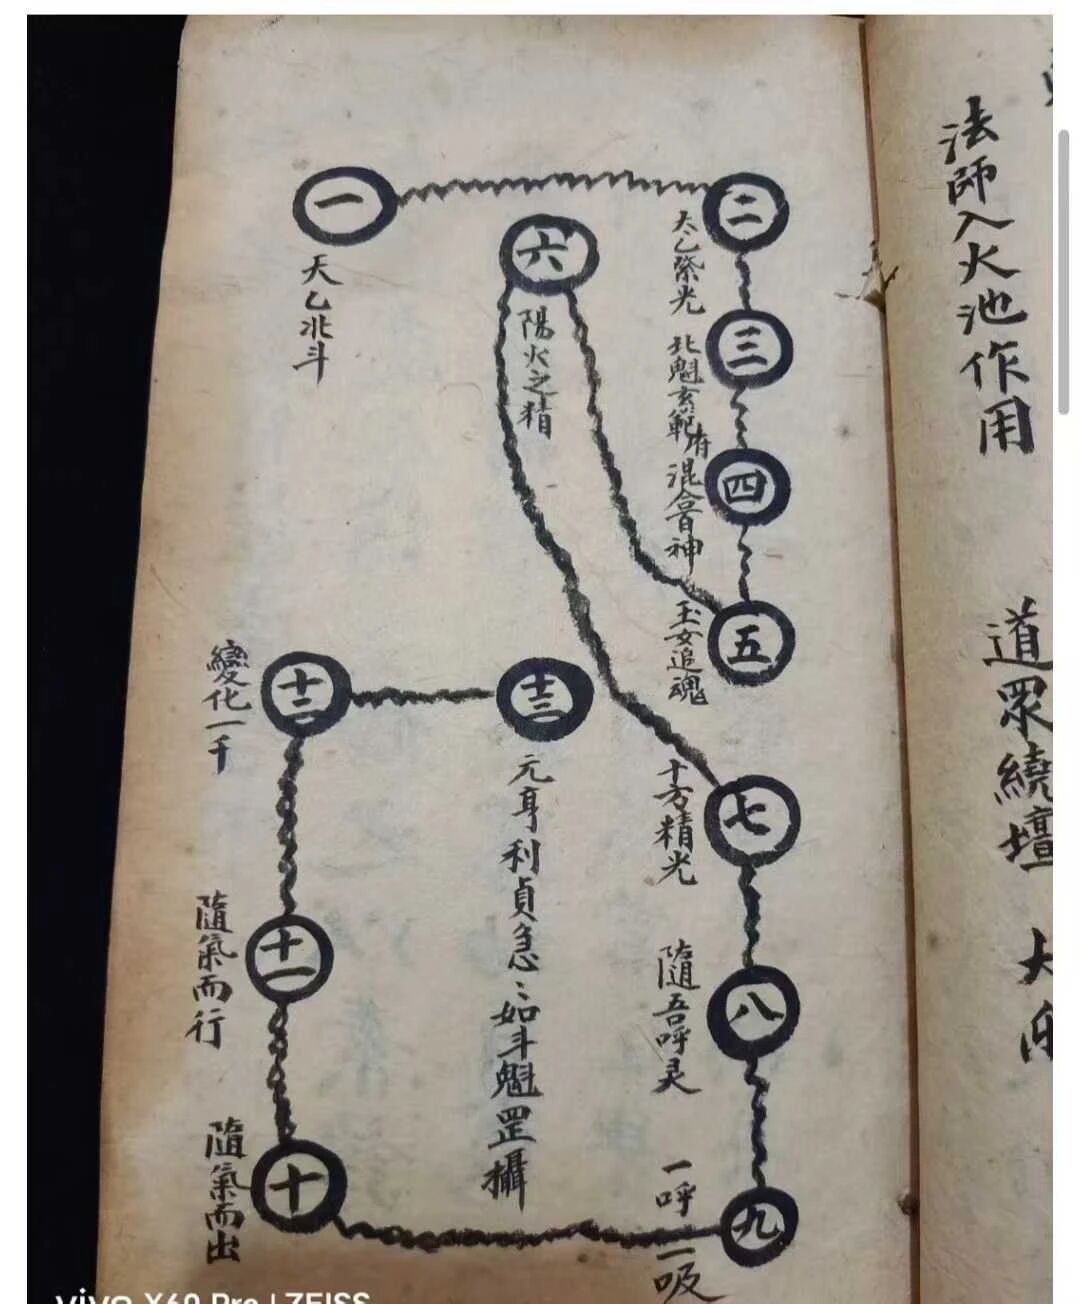 法師入火池作用
道眾繞壇
大
一
天乙北斗
二
太乙紫光
三
北魁玄範府
四
混合百神
五
玉女追魂
六
陽火之精
七
十方精光
八
隨吾呼灵
九
一呼一吸
十
隨氣而出
十一
隨氣而行
十二
變化一千
十三
元亨利貞急〻如斗魁罡攝
vivo X60 Pro | ZEISS